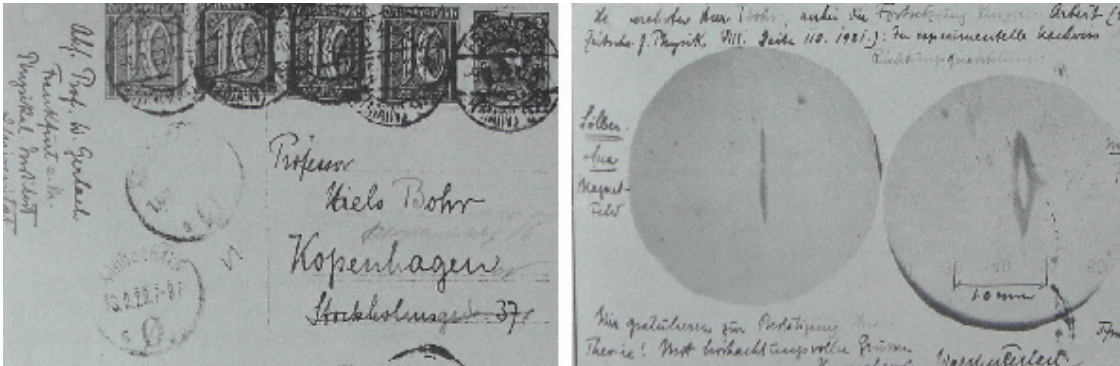 Abs. Prof. W Gerlach
Frankfurt a. M.
Physikal. Institut
10
10
10
10
Professor
Niels Bohr
Kopenhagen
Stockholmsgade 37
verehrter Herr Bohr, anbei die Fortsetzung unserer Arbeit
Zeitschr. f. Physik VIII. Seite 110. 1921.): Der experimentelle Nachweis
Richtungsquantelung.
Silber
ohne
Magnet-
Feld
10 mm
Wir gratulieren zur Bestätigung Ihrer
Theorie! Mit hochachtungsvollen Grüssen
Walther Gerlach